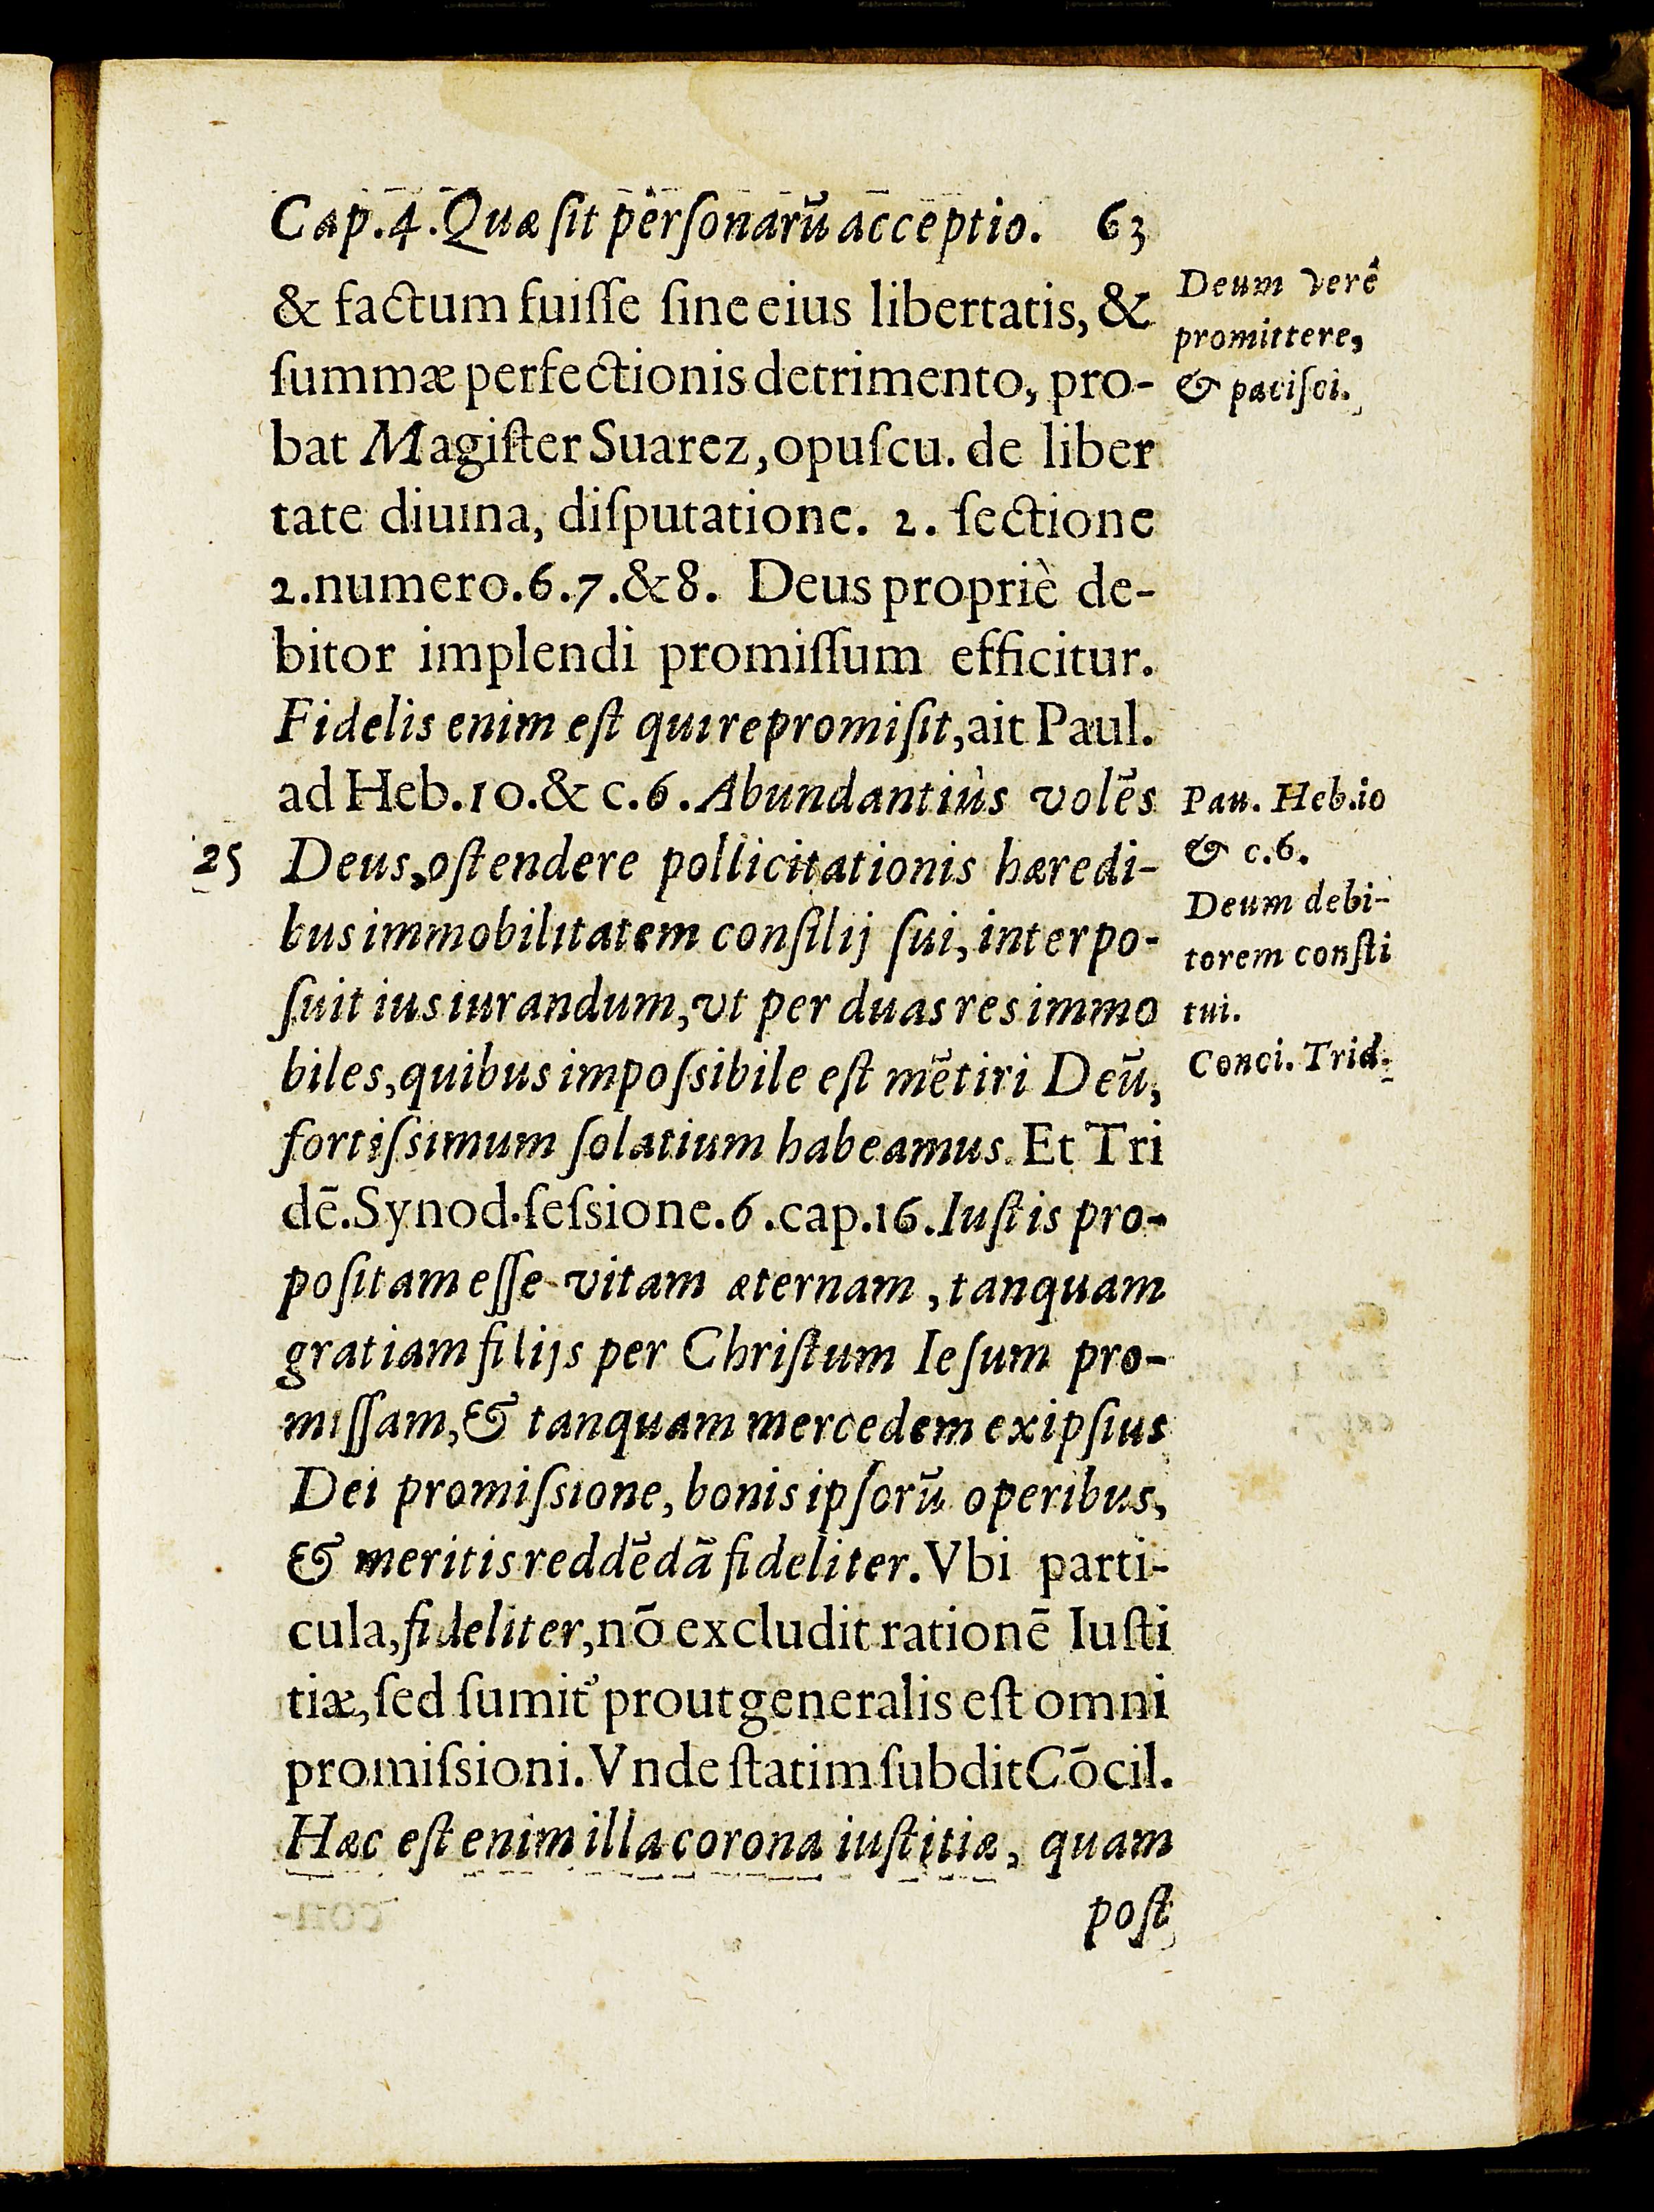 Cap.4.Quæ ſit perſonarū acceptio. 63
& factum fuiſſe ſine eius libertatis, &
ſummæ perfectionis detrimento, pro-
bat Magiſter Suarez, opuſcu. de liber
tate diuina, diſputatione. 2. ſectione
2.numero.6.7.&8. Deus propriè de-
bitor implendi promiſſum efficitur.
Fidelis enim eſt qui repromiſit, ait Paul.
ad Heb.10.& c.6. Abundantiùs volēs
25 Deus, oſtendere pollicitationis hæredi-
bus immobilitatem conſilij ſui, interpo-
ſuit iusiurandum, vt per duas res immo
biles, quibus impoſsibile eſt mētiri Deū,
fortiſsimum ſolatium habeamus. Et Tri
dē. Synod. ſeſsione.6.cap.16. Iuſtis pro-
poſitam eſſe vitam æternam, tanquam
gratiam filijs per Chriſtum Ieſum pro-
miſſam, & tanquam mercedem ex ipſius
Dei promiſsione, bonis ipſorū operibus,
& meritis reddēdā fideliter. Vbi parti-
cula, fideliter, nō excludit rationē Iuſti
tiæ, ſed ſumit᾽ prout generalis eſt omni
promiſsioni. Vnde ſtatim ſubdit Cōcil.
Hæc eſt enim illa corona iuſtitiæ, quam
poſt
Deum verè
promittere,
& paciſci.
Pau. Heb.io
& c.6.
Deum debi-
torem conſti
tui.
Conci. Trid.